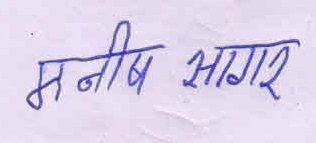 मनीष सागर